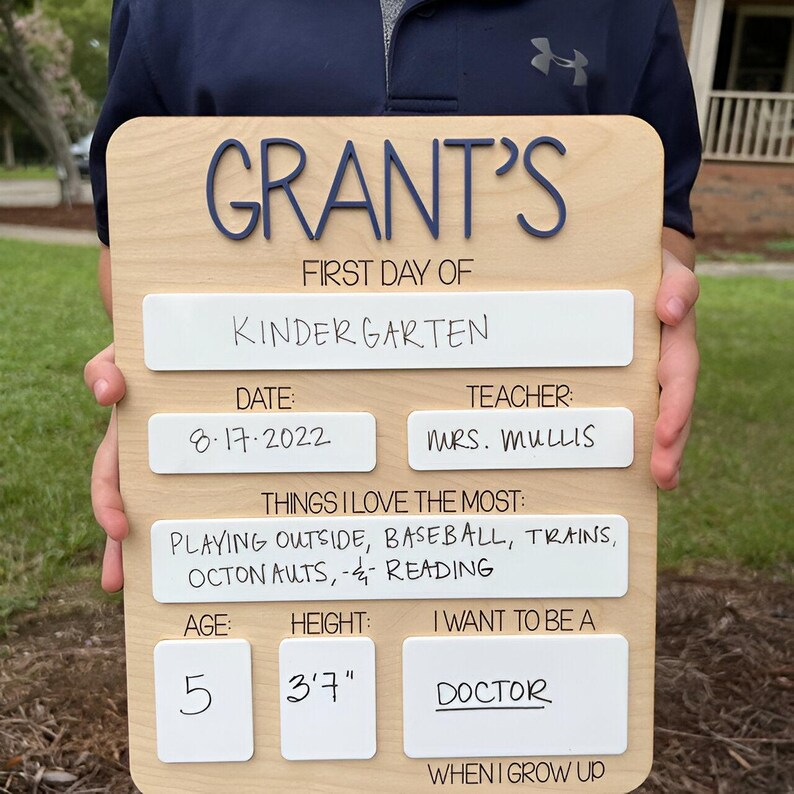 GRANT'S
FIRST DAY OF
KINDERGARTEN
DATE: TEACHER:
8·17·2022 MRS. MULLIS
THINGS I LOVE THE MOST:
PLAYING OUTSIDE, BASEBALL, TRAINS,
OCTONAUTS, & READING
AGE: HEIGHT: I WANT TO BE A
5 3'7" DOCTOR
WHEN I GROW UP